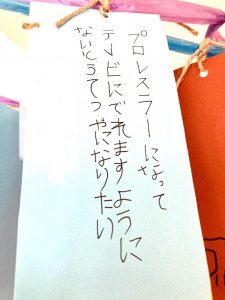 プロレスラーになって
テレビにでれますように
ないとうてつやになりたい